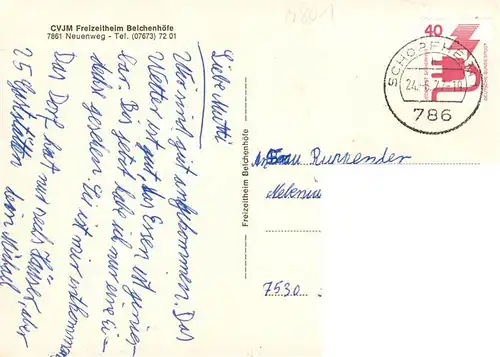 CVJM Freizeitheim Belchenhöfe
7861 Neuenweg - Tel. (07673) 72 01
Liebe Mutti
Wir sind gut angekommen. Das
Wetter ist gut das Essen ist genies-
bar. Bis jetzt habe ich nur eine Ei-
dechse gesehen sie ist mir entkommen
Das Dorf hat nur sechs Häuser, aber
25 Gaststätten dein Michael
Freizeitheim Belchenhöfe
40
SCHOPFHEIM
786
An Frau Ruckender
7530